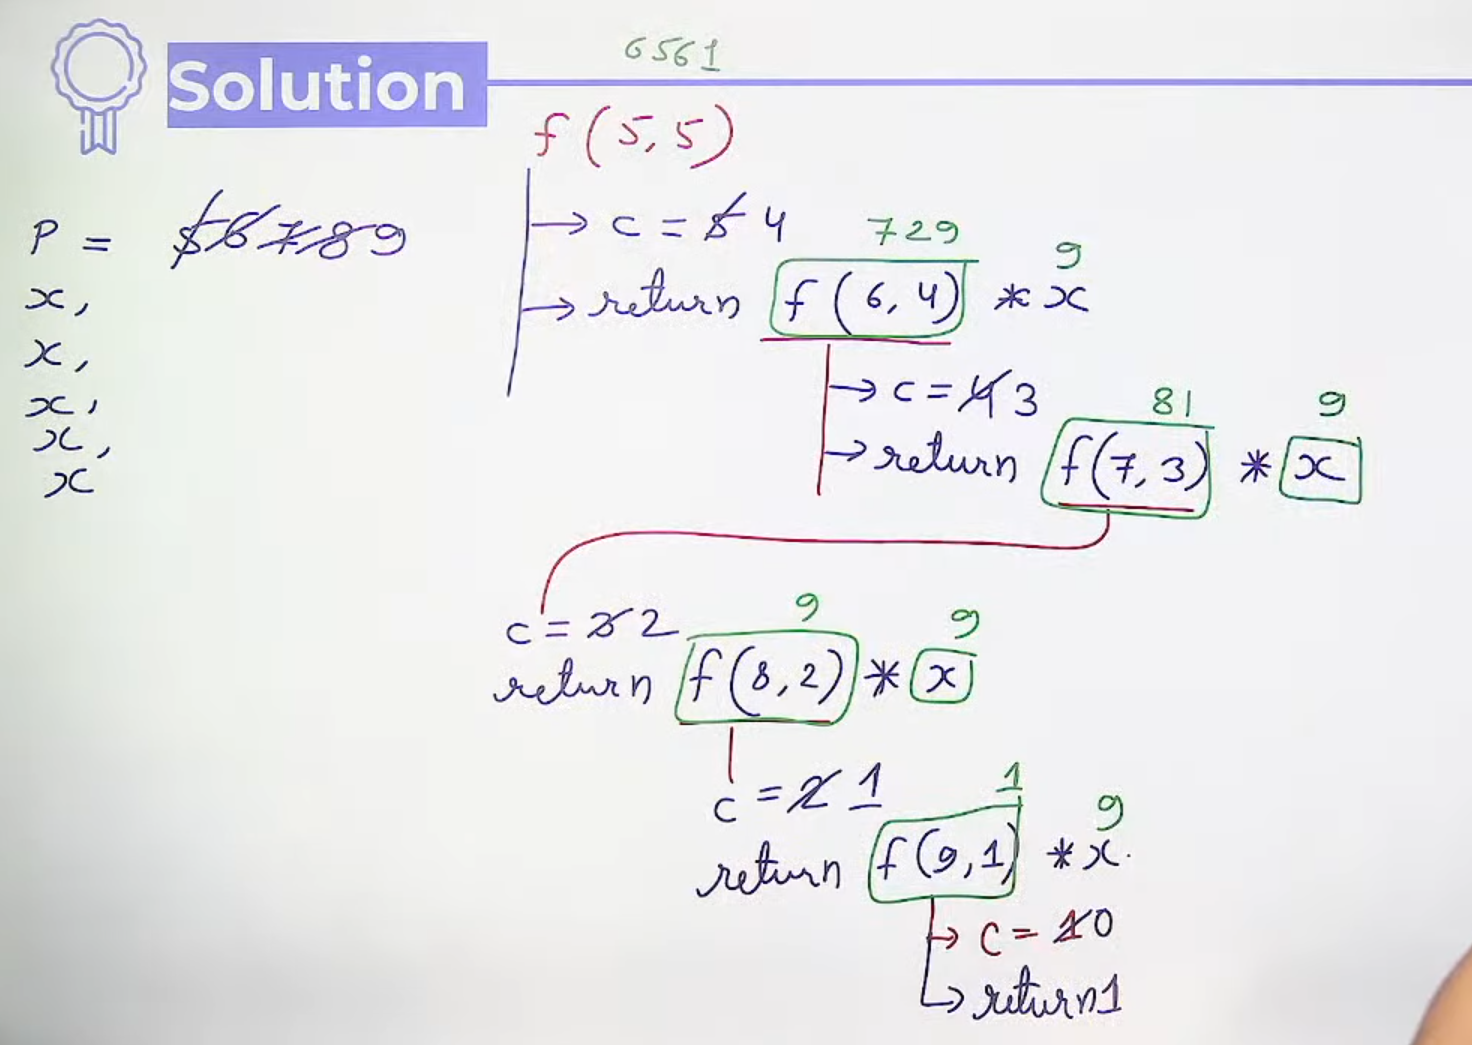 6561
Solution
f(5,5)
P = 5 6 7 8 9
x,
x,
x,
x,
x
→ c = 5 4
729
9
→ return f(6,4) * x
→ c = 4 3
81
9
→ return f(7,3) * x
c = 3 2
9
9
return f(8,2) * x
c = 2 1
1
9
return f(9,1) * x.
→ c = 1 0
→ return 1